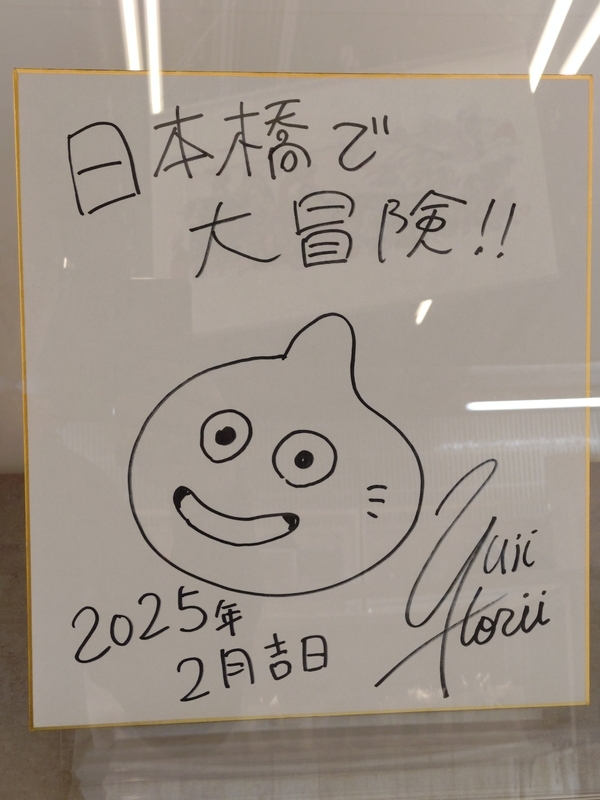 日本橋で
大冒険!!
2025年
2月吉日
Yuji
Horii